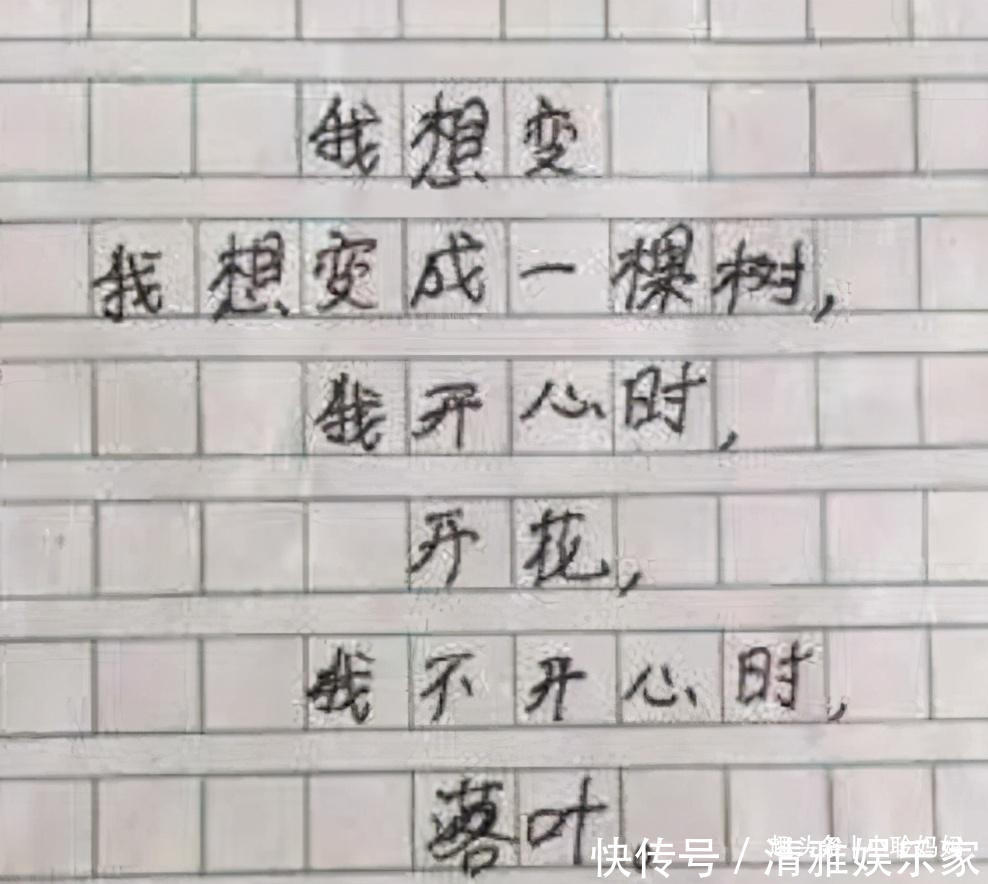 我想变
我想变成一棵树,
我开心时,
开花,
我不开心时,
落叶.
快传号/清雅娱乐家